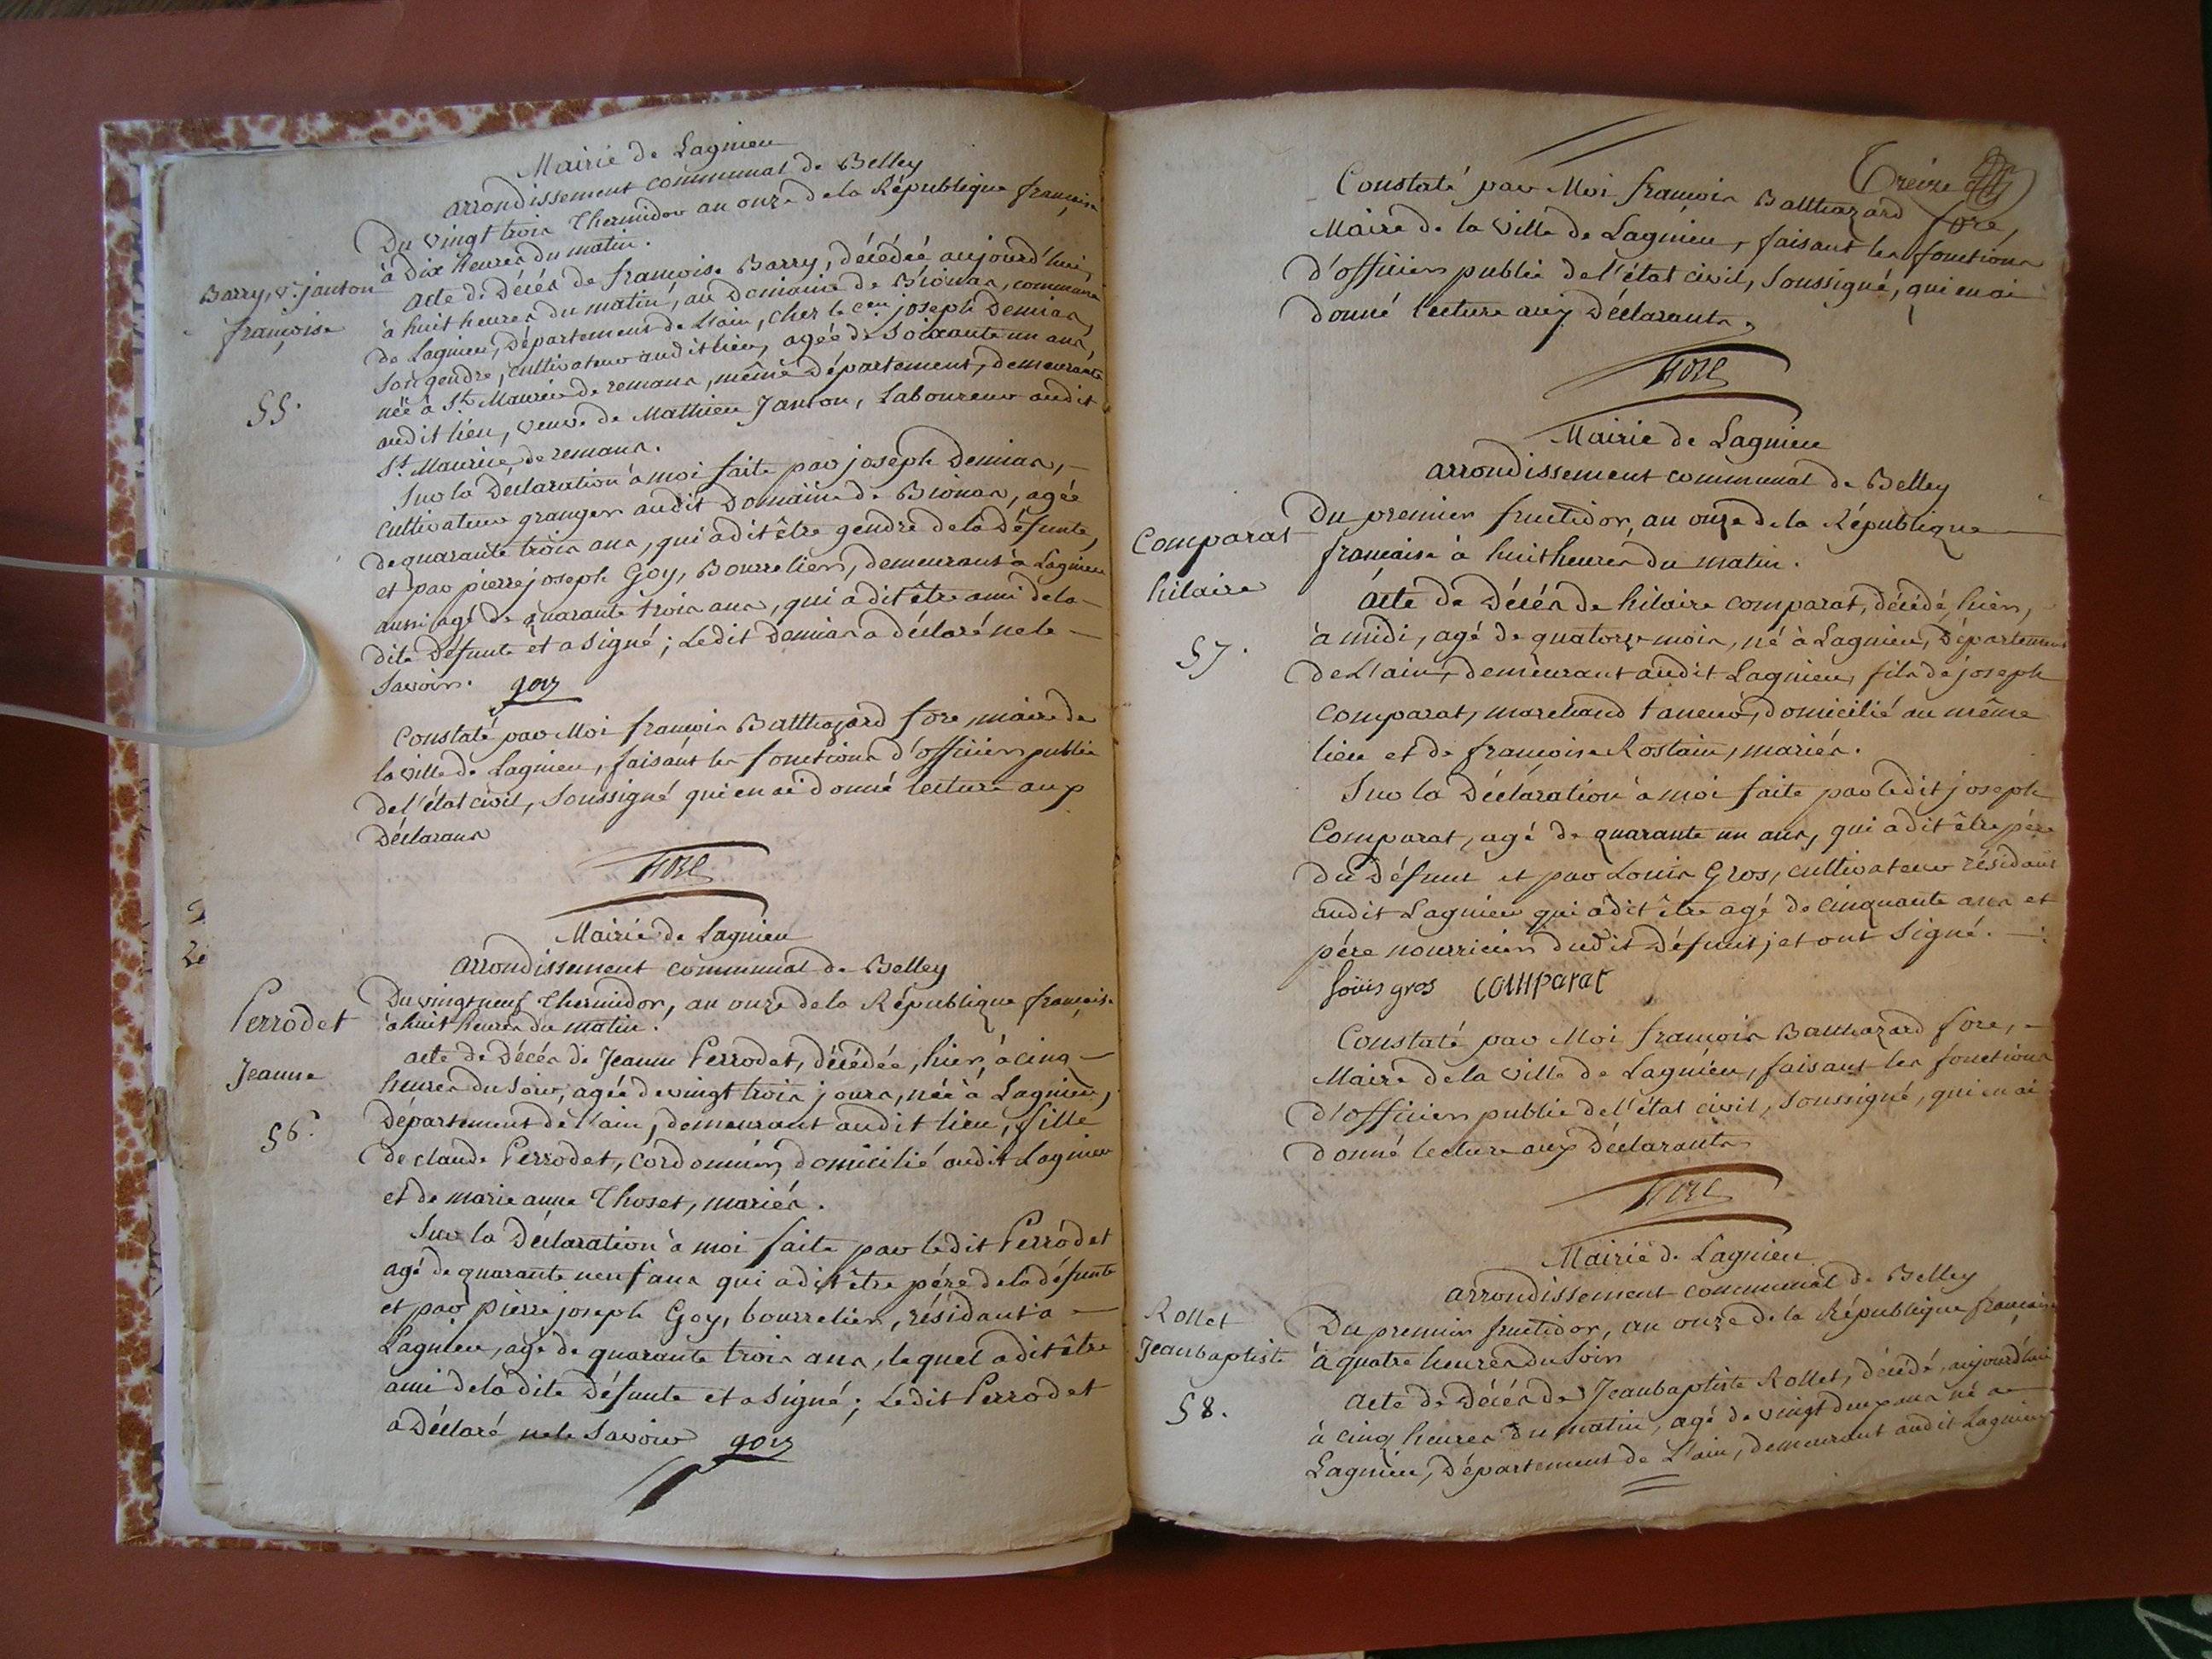 Mairie de Lagnieu
arrondissement communal de Belley
Du vingt trois Thermidor an onze de la République française
à dix heures du matin.
Barry, Ve. janton
françoise
55.
acte de Décés de françoise Barry, décédée aujourd'hui,
à huit heures du matin, au Domaine de Bionas, commune
de Lagnieu, Département de L'ain, chez le cen. joseph Demias,
son gendre, cultivateur audit lieu, agée de Soixante un ans,
née à St. Maurice de remans, même Département, demeurante
audit lieu, veuve de Mathieu Janton, Laboureur audit
St. Maurice de remans.
Sur la Déclaration à moi faite par joseph Demias,
cultivateur granger audit Domaine de Bionas, agée
de quarante trois ans, qui a dit être gendre de la Défunte,
et par pierre joseph Goy, Bourrelier, demeurant à Lagnieu
aussi agé de quarante trois ans, qui a dit être ami de la
dite Défunte et a signé; Ledit Demias a déclaré ne le
savoir. goy
Constaté par Moi françois Balthazard fore, maire de
la ville de Lagnieu, faisant les fonctions d'officier public
de l'état civil, Soussigné qui en ai donné lecture aux
Déclarans
fore
Mairie de Lagnieu
arrondissement communal de Belley
Perrodet
Jeanne
56.
Du vingt neuf Thermidor, an onze de la République française
à huit heures du matin.
acte de Décés de Jeanne Perrodet, décédée, hier, à cinq
heures du soir, agée de vingt trois jours, née à Lagnieu,
Département de l'ain, demeurant audit lieu, fille
de claude Perrodet, cordonnier, domicilié audit Lagnieu
et de marie anne Thoset, mariés.
Sur la Déclaration à moi faite par ledit Perrodet
agé de quarante neuf ans qui a dit être pére de la défunte
et par pierre joseph Goy, bourrelier, résidant à
Lagnieu, agé de quarante trois ans, lequel a dit être
ami de la dite Défunte et a signé; Ledit Perrodet
a Déclaré ne le savoir goy
Constaté par Moi françois Balthazard fore,
Maire de la ville de Lagnieu, faisant les fonctions
d'officier public de l'état civil, Soussigné, qui en ai
donné lecture aux Déclarants,
fore
Mairie de Lagnieu
arrondissement communal de Belley
Comparat
hilaire
57.
Du premier fructidor, an onze de la République
française à huit heures du matin.
Acte de Décés de hilaire comparat, décédé, hier,
à midi, agé de quatorze mois, né à Lagnieu, Département
de L'ain, demeurant audit Lagnieu, fils de joseph
comparat, marchand taneur, domicilié au même
lieu et de françoise Rostain, mariés.
Sur la Déclaration à moi faite par ledit joseph
Comparat, agé de quarante un ans, qui a dit être pére
du Défunt et par Louis Gros, cultivateur résidant
audit Lagnieu qui a dit être agé de cinquante ans et
pére nourricier dudit Défunt, et ont signé.
louis gros comparat
Constaté par Moi françois Balthazard fore,
Maire de la ville de Lagnieu, faisant les fonctions
d'officier public de l'état civil, Soussigné, qui en ai
donné lecture aux Déclarants
fore
Mairie de Lagnieu
arrondissement communal de Belley
Rollet
Jean baptiste
58.
Du premier fructidor, an onze de la République française
à quatre heures du soir
Acte de Décés de Jean baptiste Rollet, décédé, aujourd'hui
à cinq heures du matin, agé de vingt deux ans né à
Lagnieu, Département de L'ain, demeurant audit Lagnieu